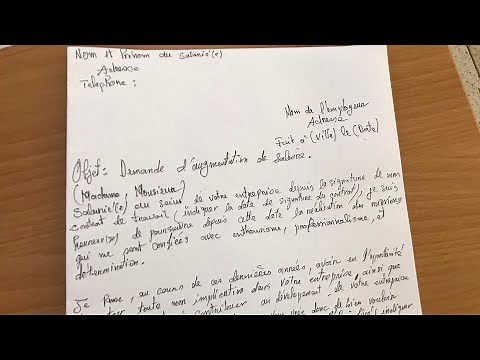 Nom et Prénom du salarié(e)
Adresse
Telephone :
Nom de l'employeur
Adresse
Fait à (Ville) le (Date)
Objet : Demande d'augmentation de salaire.
(Madame, Monsieur)
Salarié(e) au sein de votre entreprise depuis la signature de mon
contrat de travail (indiquer la date de signature du contrat), je suis
heureux(se) de poursuivre depuis cette date la réalisation des missions
qui me sont confiées avec enthousiasme, professionnalisme, et
détermination.
Je pense, au cours de ces dernières années, avoir eu l'opportunité
toute mon implication dans votre entreprise, ainsi que
contribuer au développement de votre entreprise
donc de bien vouloir
indiquer